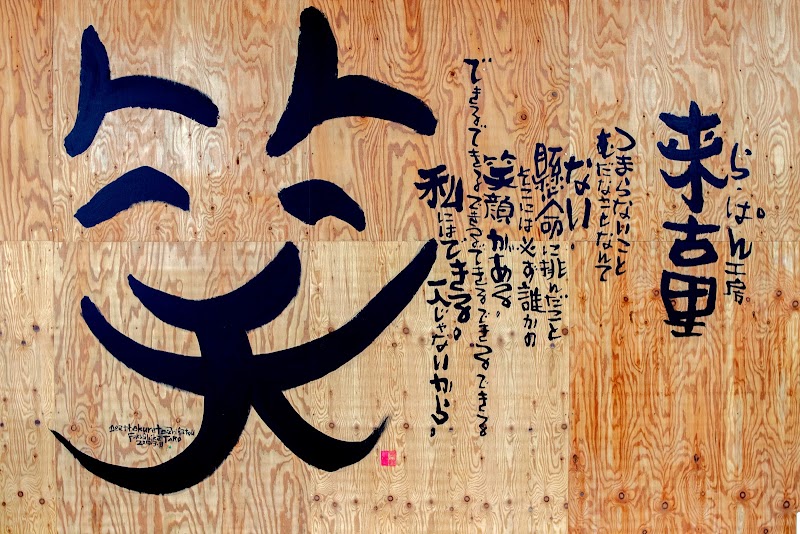 ら・ぱん工房
来古里
つまらないこと
むだなことなんて
ない。
懸命に挑んだこと
そこには必ず誰かの
笑顔がある。
できるできるできるできるできるできるできる
私にはできる。
一人じゃないから。
笑